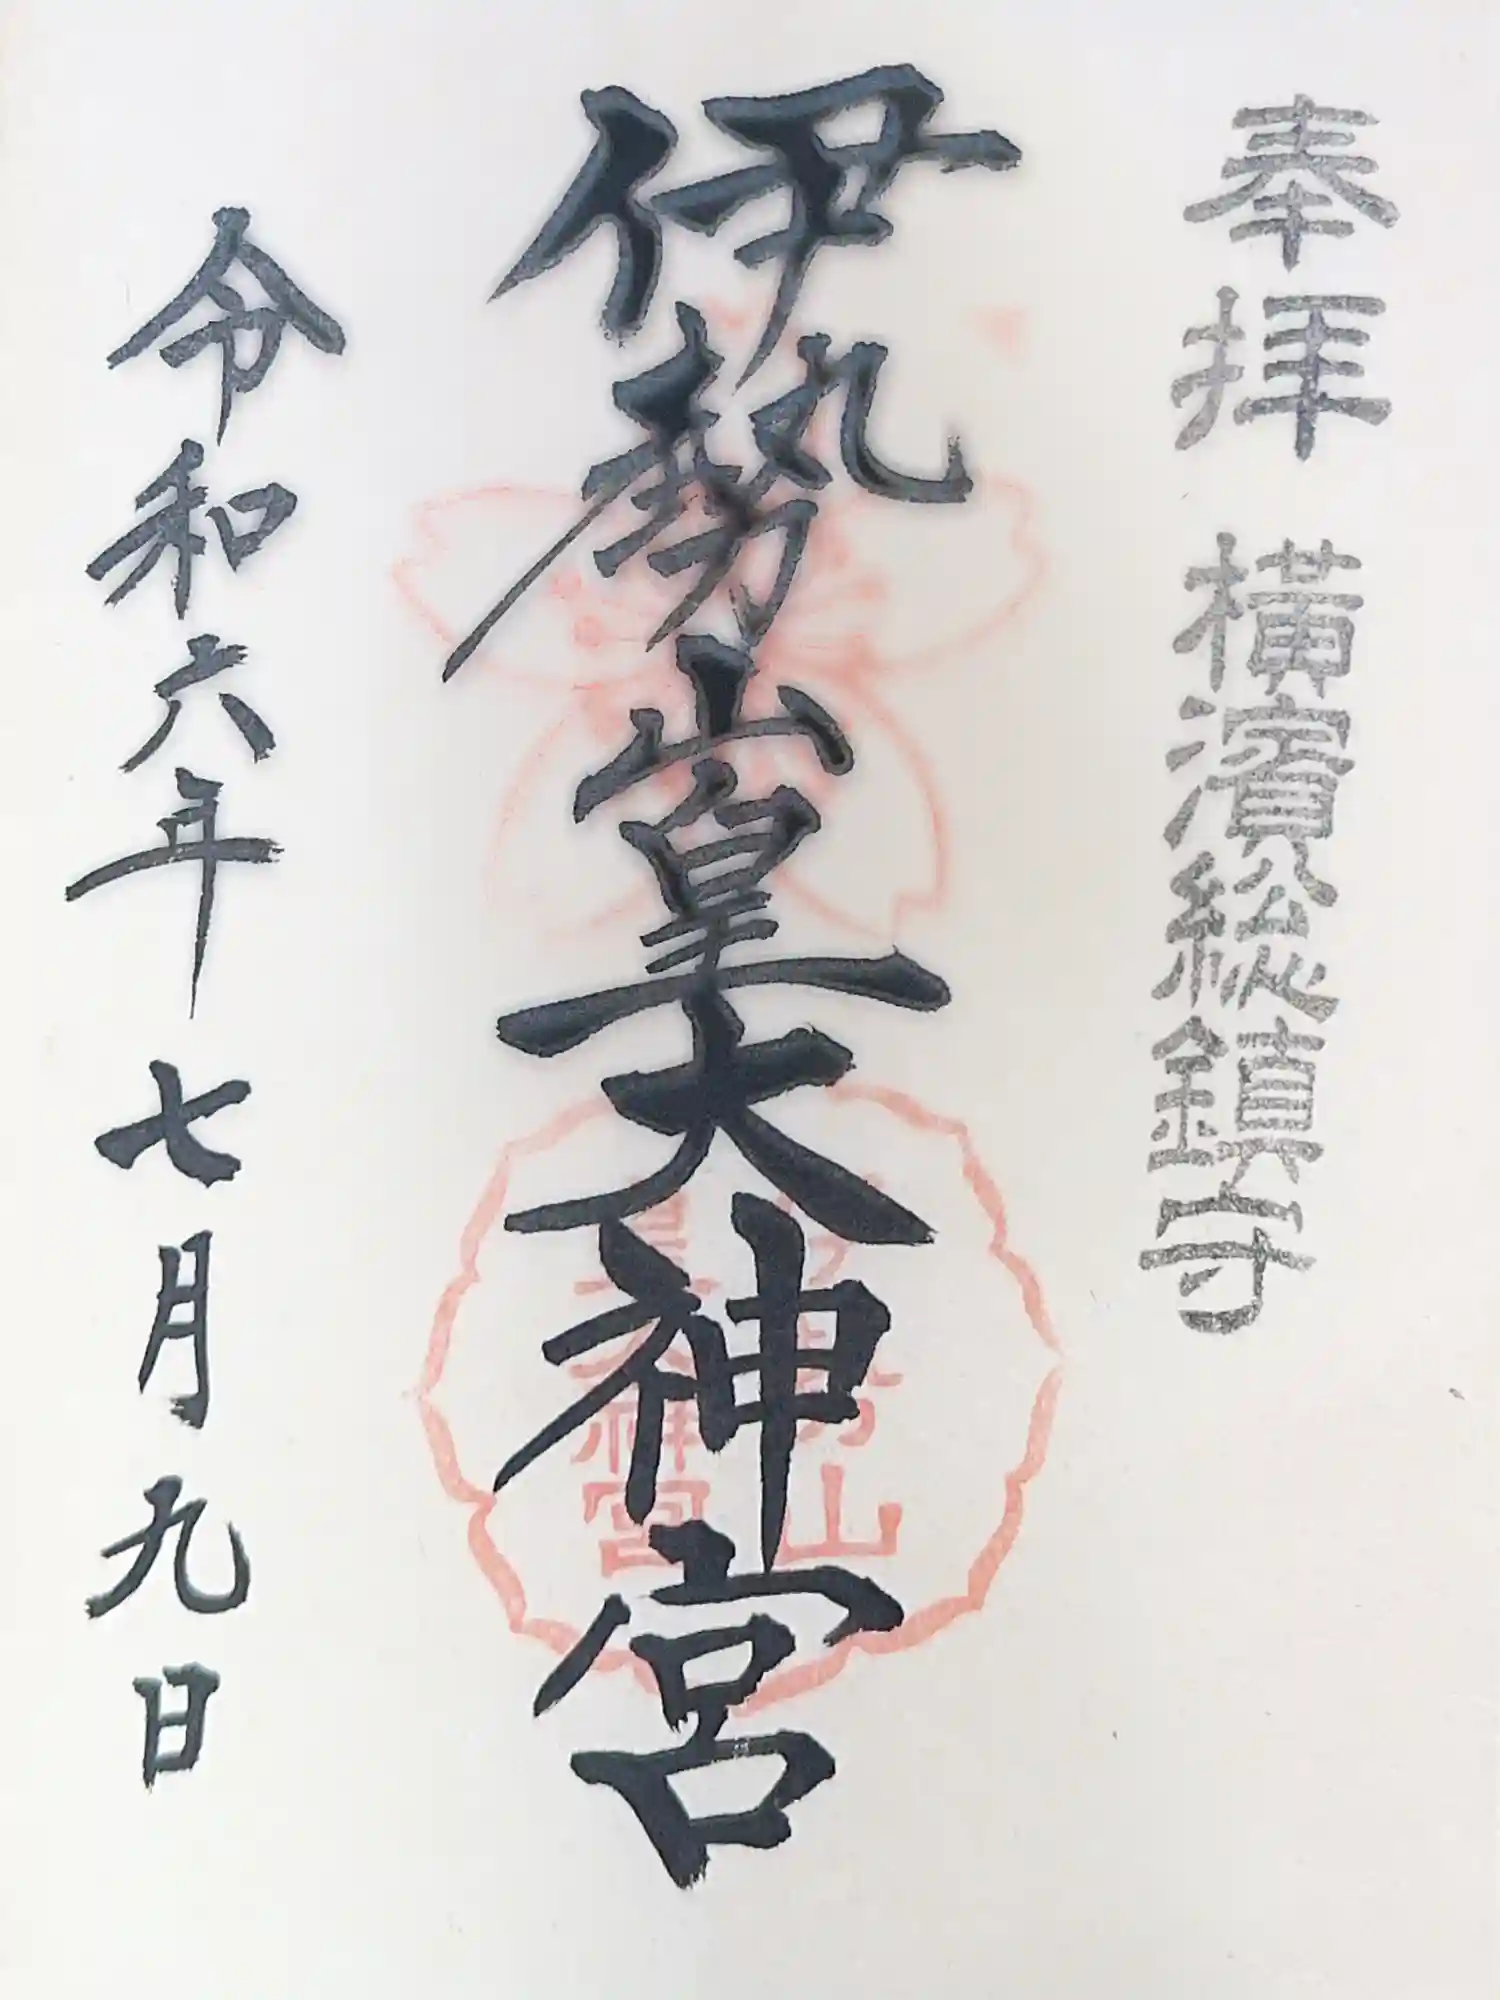 奉拝 横濱総鎮守
伊勢山皇大神宮
伊勢山
皇大神宮
令和六年七月九日